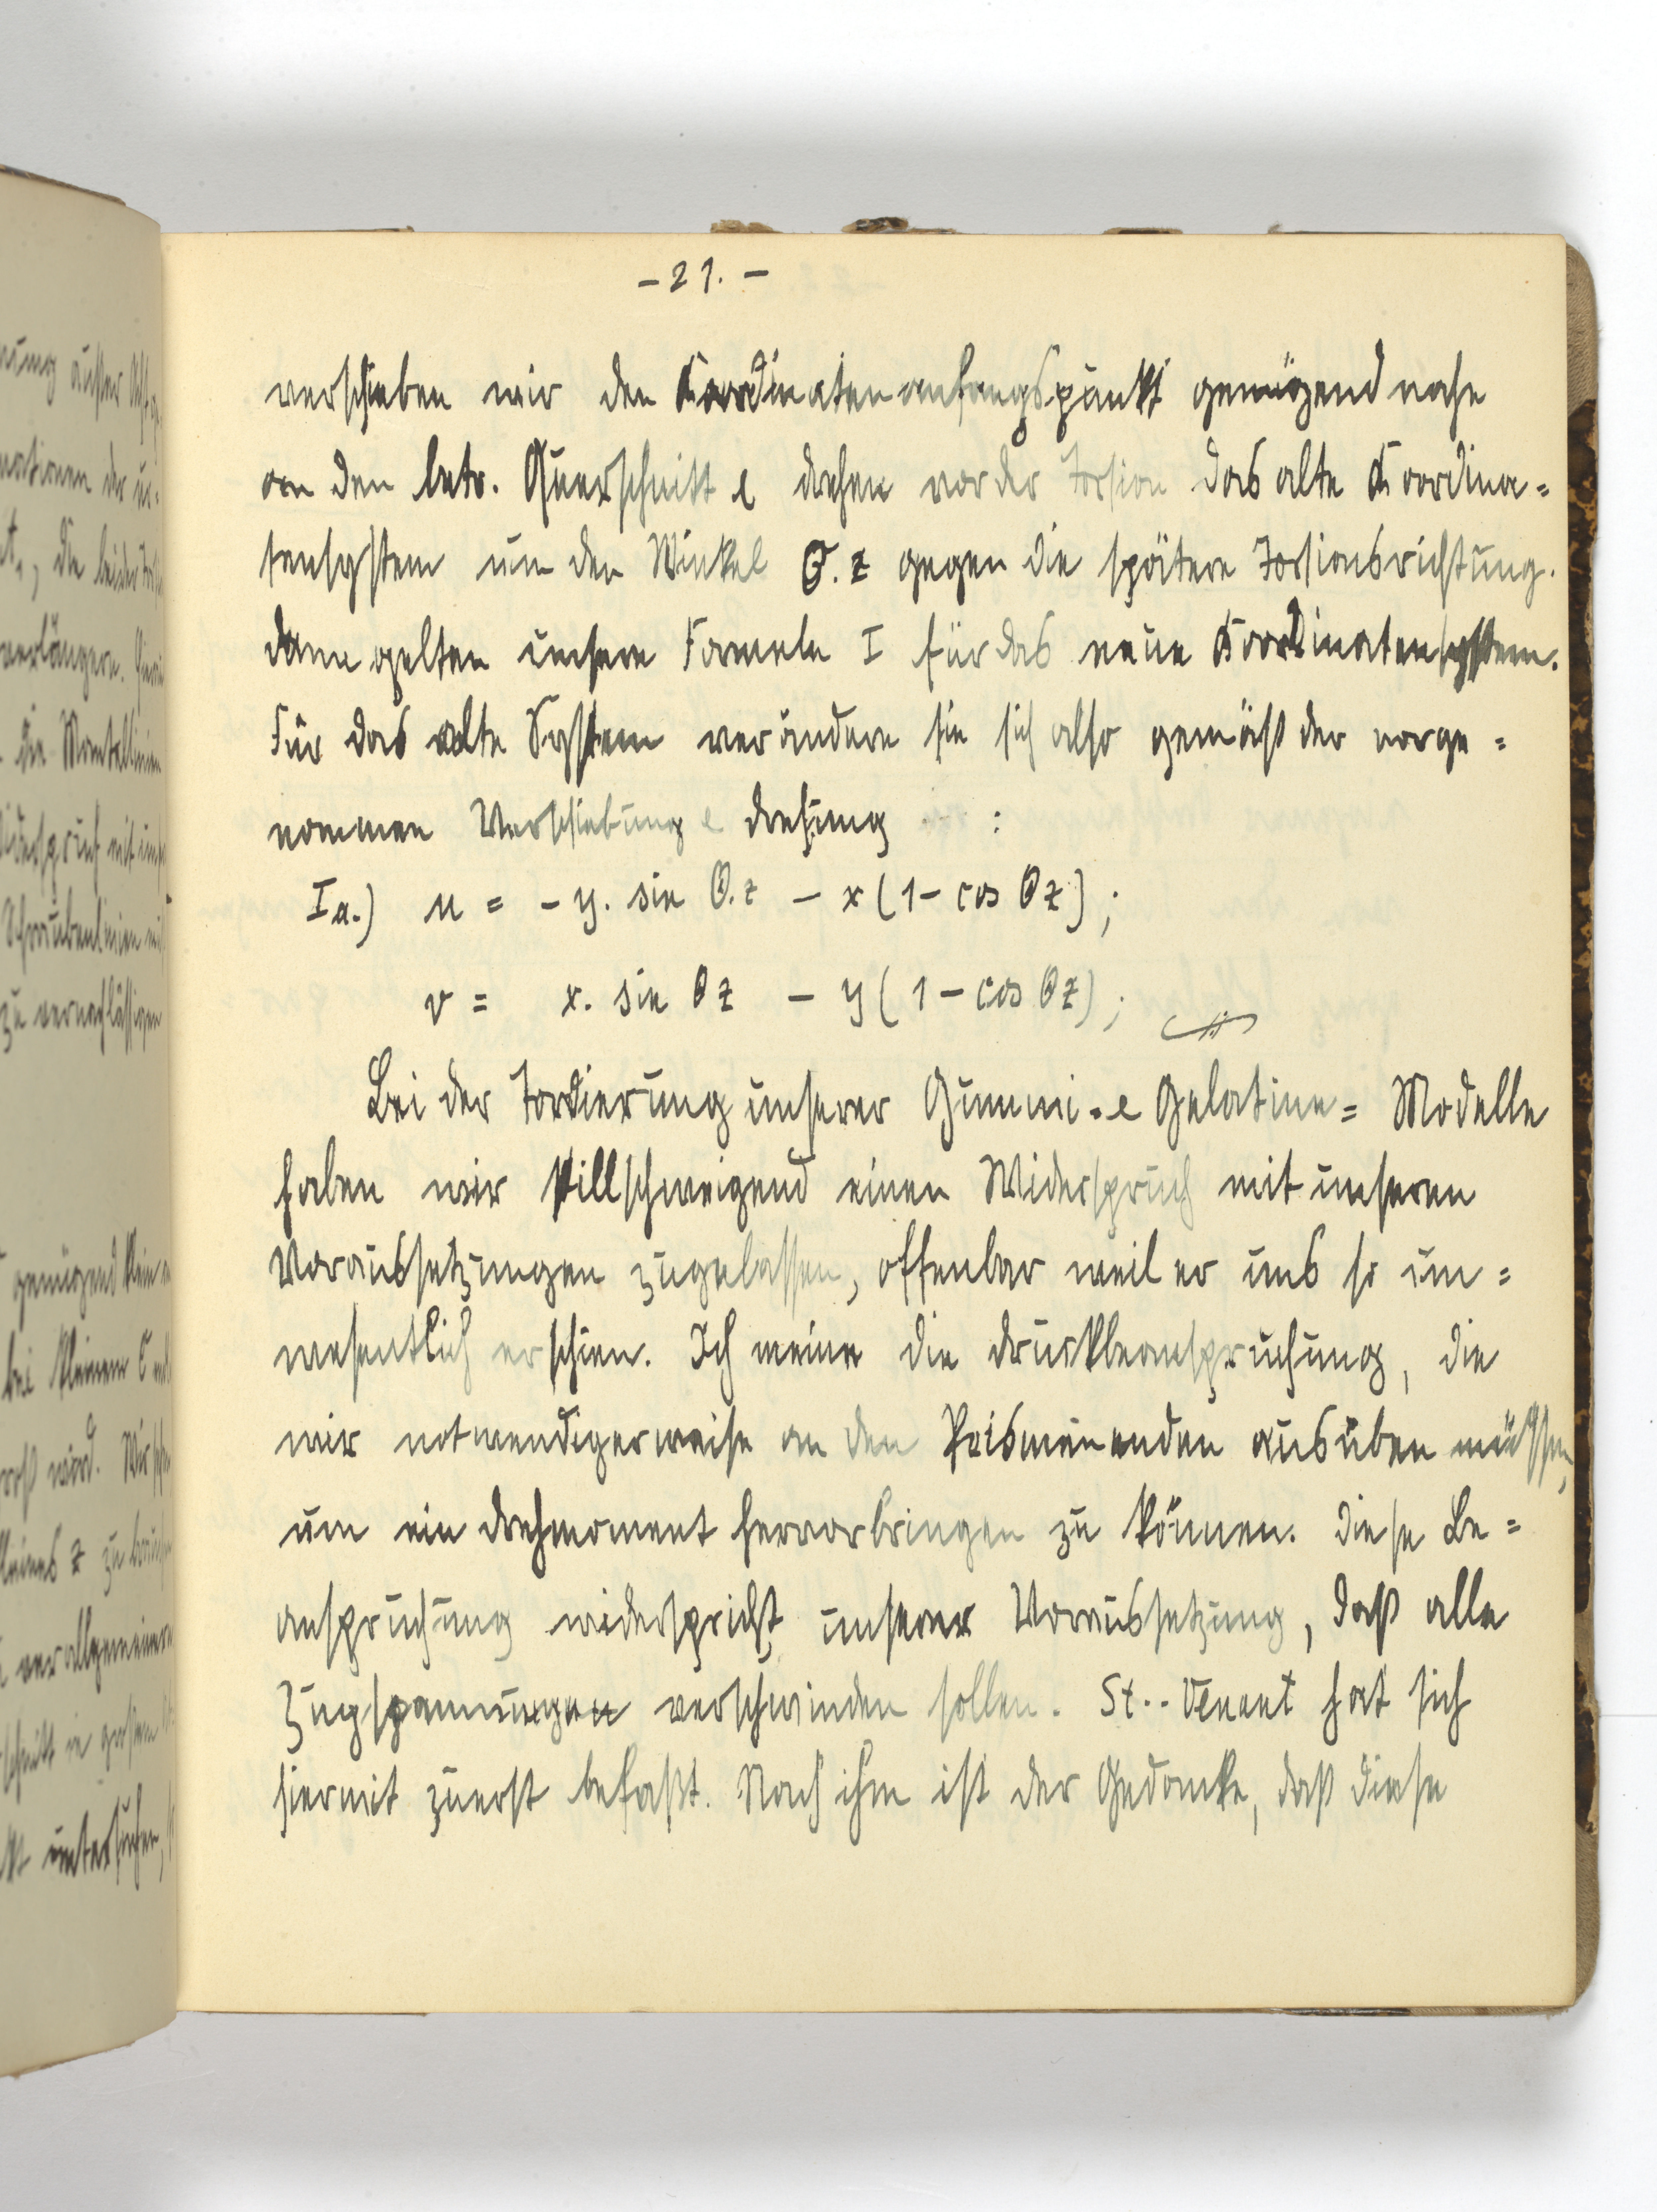 - 21. -
verschieben wir den Koordinatenanfangspunkt genügend nahe
an den betr. Querschnitt & drehen vor der Torsion das alte Koordina=
tensystem um den Winkel Θ. z gegen die spätere Torsionsrichtung.
dann gelten unsere Formeln I für das neue Koordinatensystem.
Für das alte System verändern sie sich also gemäß der vorge=
nommen Verschiebung & drehung :
Ia.) u = - y. sin Θ.z - x (1 - cos Θz) ;
v = x. sin Θz - y (1 - cos Θz) ;
Bei der Tordierung unserer Gummi= & Gelatine= Modelle
haben wir stillschweigend einen Widerspruch mit unseren
Voraussetzungen zugelassen, offenbar weil er uns so un=
wesentlich erschien. Ich meine die druckbeanspruchung, die
wir notwendigerweise an den Prismenenden ausüben müssen,
um ein drehmoment hervorbringen zu können. diese Be=
anspruchung widerspricht unserer Voraussetzung, daß alle
Zugspannungen verschwinden sollen. St.. Venant hat sich
hiermit zuerst befaßt. Nach ihm ist der Gedanke, daß diese